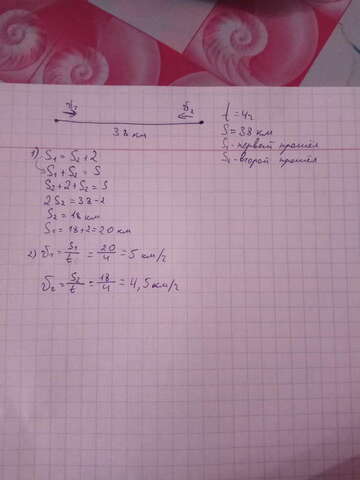 v₁ v₂
38 км
t = 4ч
S = 38 км
S₁ - первый прошёл
S₁ - второй прошёл
1) S₁ = S₂ + 2
S₁ + S₂ = S
S₂ + 2 + S₂ = S
2S₂ = 38 - 2
S₂ = 18 км
S₁ = 18 + 2 = 20 км
2) v₁ = S₁/t = 20/4 = 5 км/ч
v₂ = S₂/t = 18/4 = 4,5 км/ч